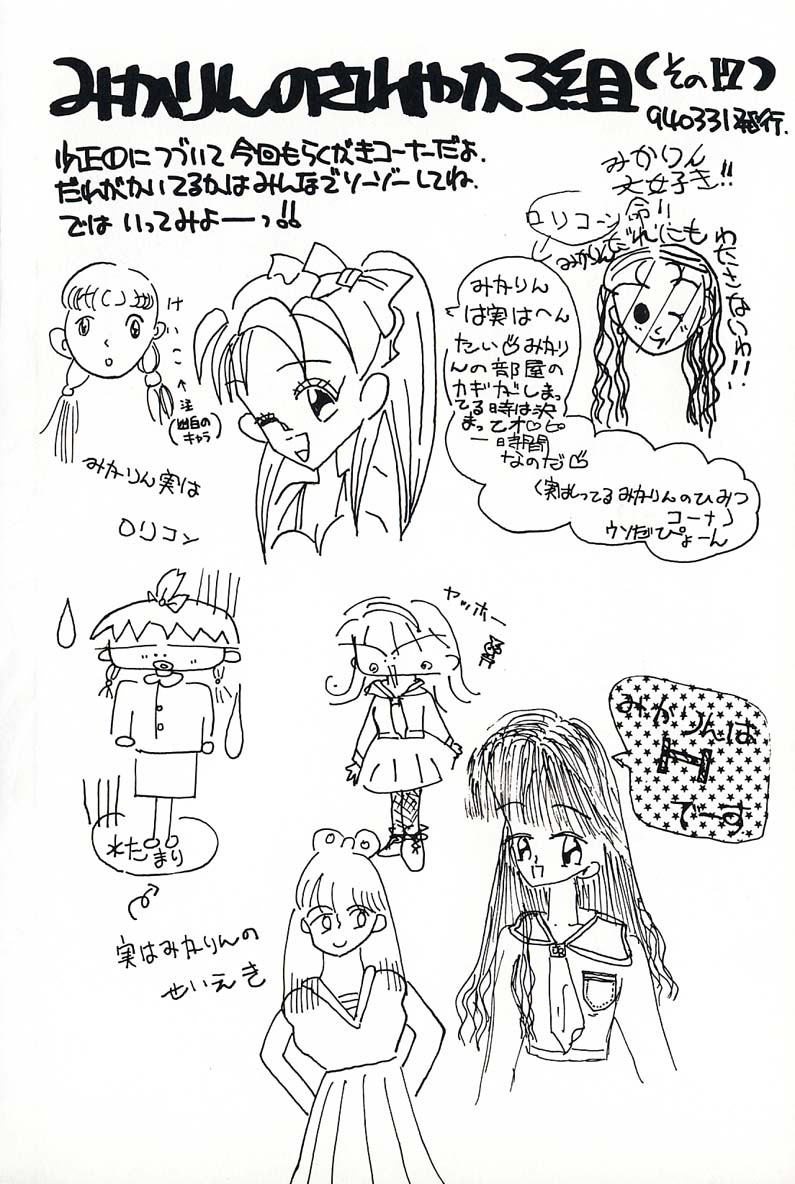 みかりんのさわやか3組(その17)
940331発行.
少正①につづいて今回もらくがきコーナーだよ.
だれがかいてるかはみんなでソーゾーしてね.
では いってみよーっ!!
みかりん
大好き!!
命!!
ロリコーン
みかりんだれにも
わたさないわ!!
けいこ
↑
注
(幽白の
キャラ)
みかりん実は
ロリコン
みかりん
は実はへん
たい♡みかり
んの部屋の
カギがしまっ
てる時は決
まってオ○○
一時間
なのだ♡
〈実はしってるみかりんのひみつ
コーナ〉
ウソだぴょーん
ヤッホー
みかりんは
H
でーす
水たまり
実はみかりんの
せいえき